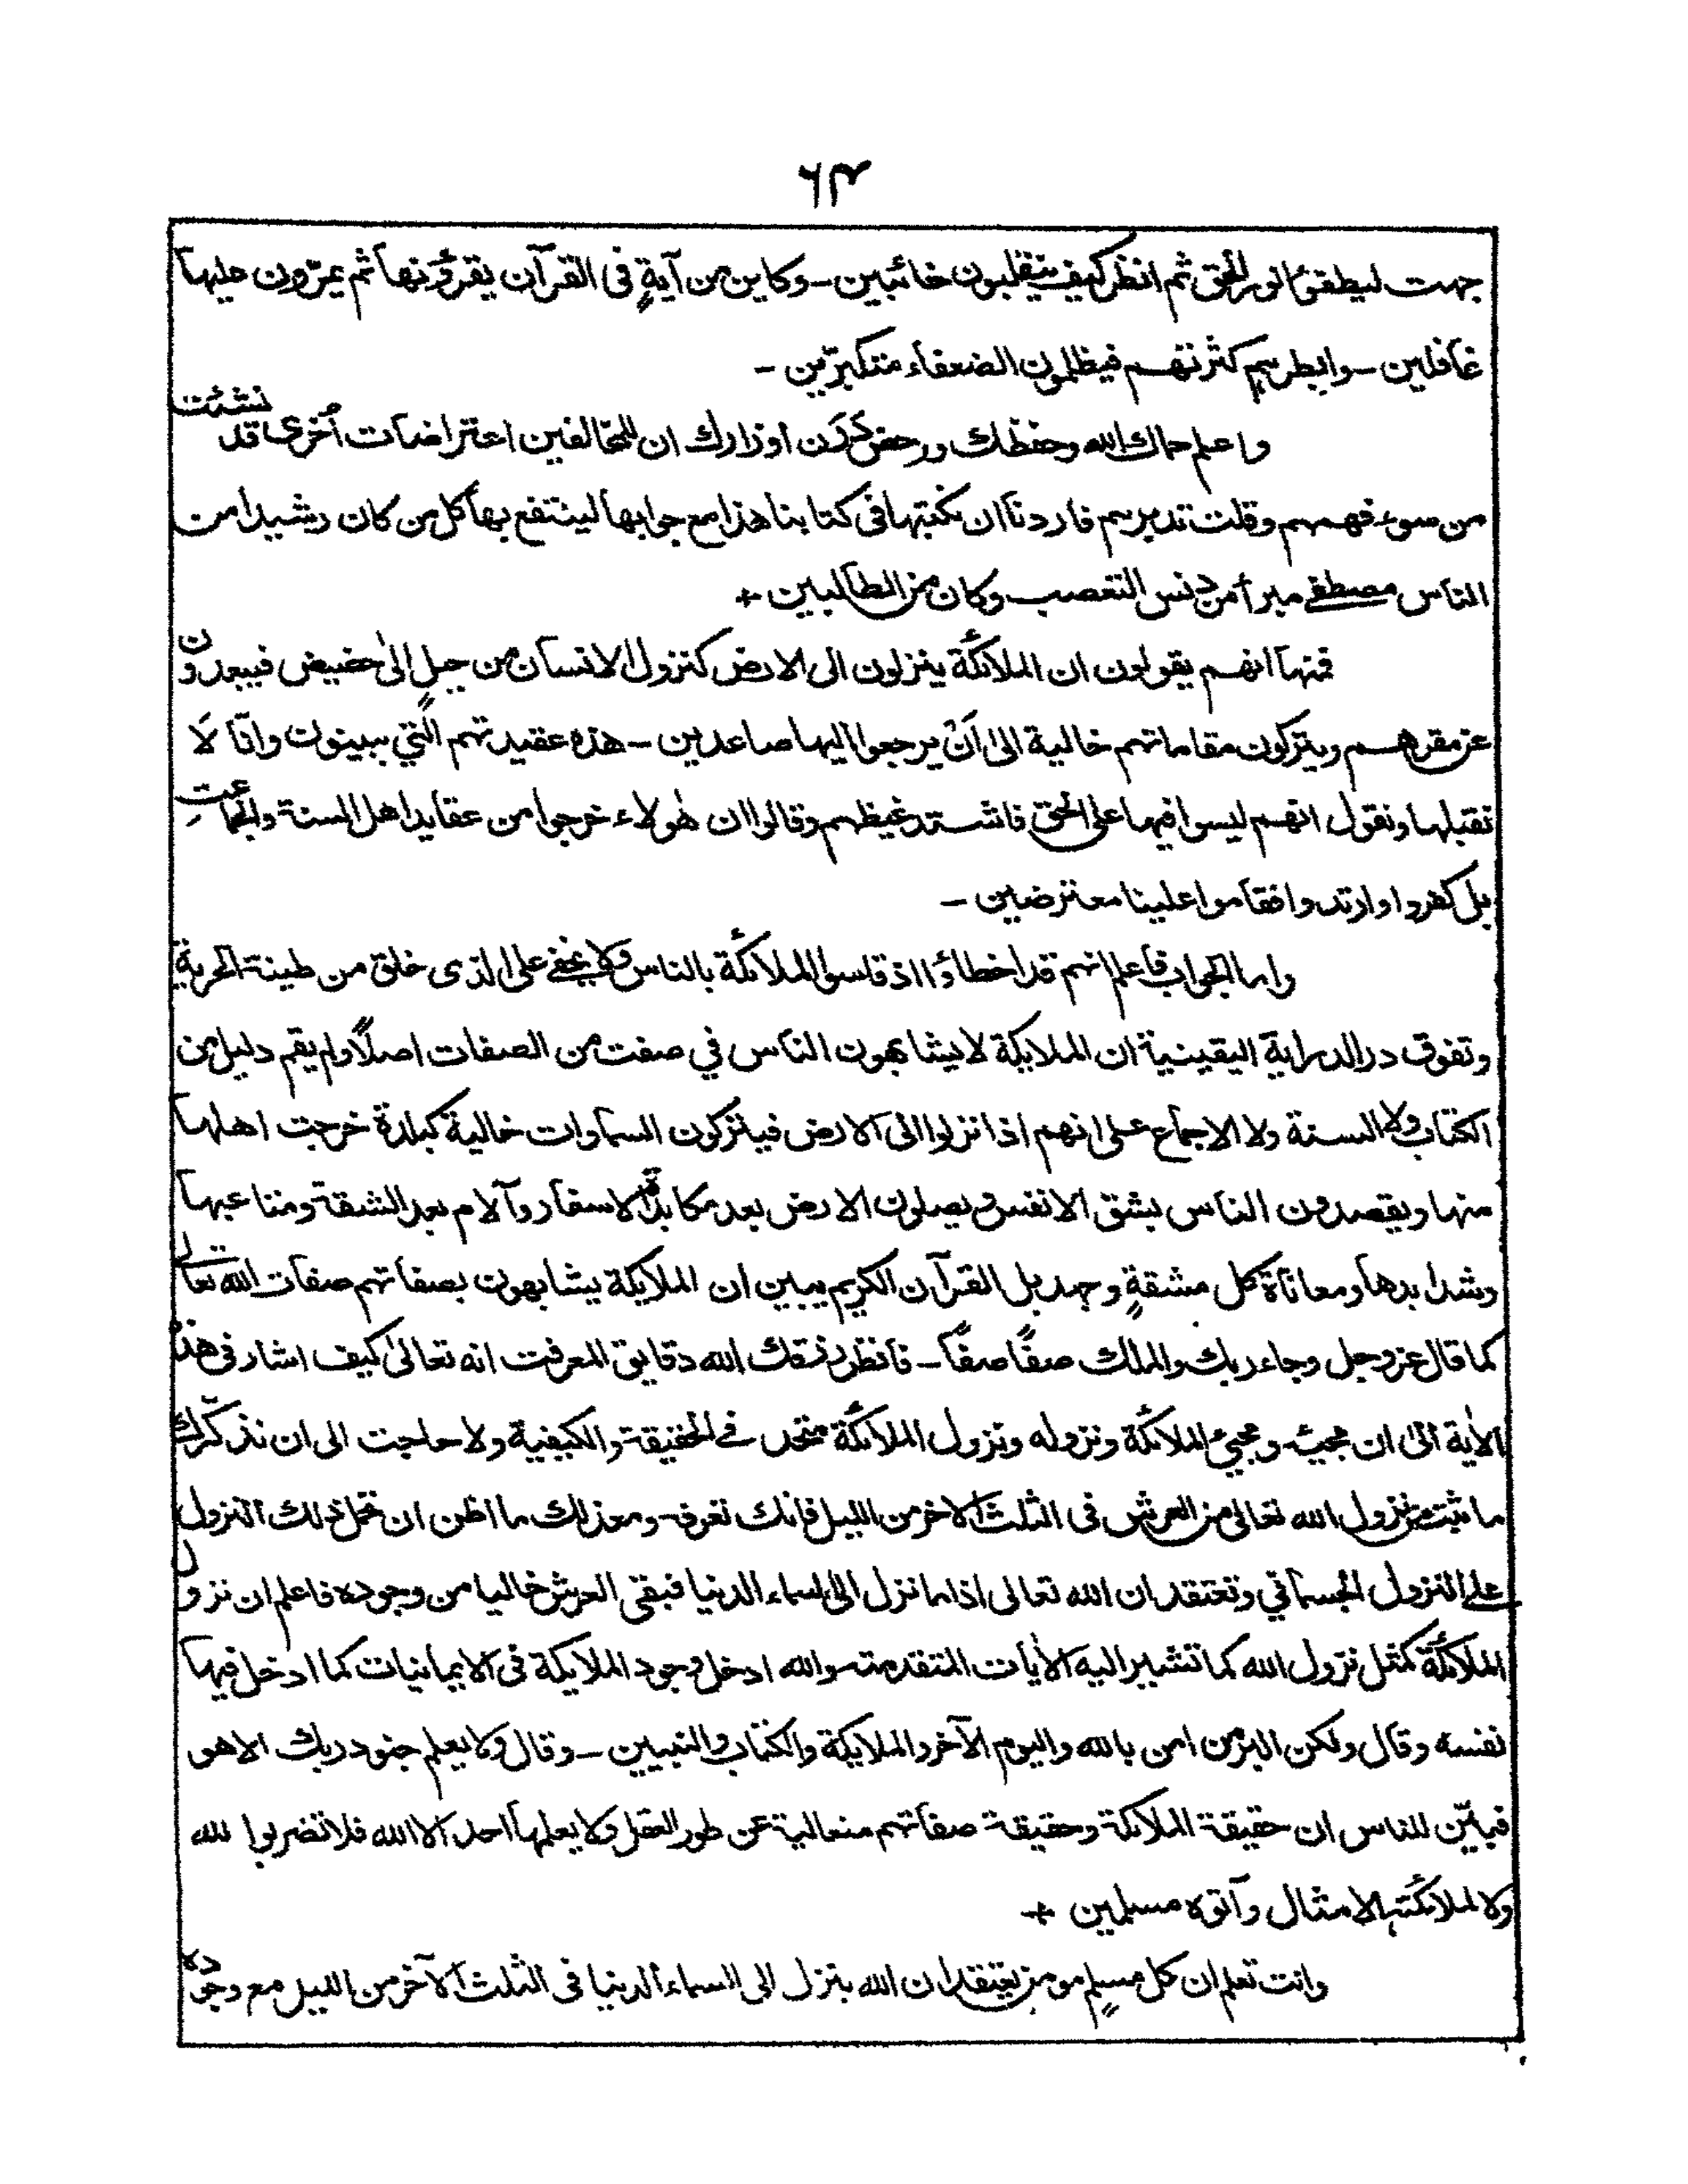 ٦٣
جهت ليطفئوا نور الحق ثم انظر كيف ينقلبون خائبين - وكاين من آيةٍ فى القرآن يقرؤنها ثم يمرّون عليها
غافلين - وابطرهم كثرتهم فيظلمون الضعفاء متكبّرين -
واعلم حماك الله وحفظك ورحض درن اوزارك ان للمخالفين اعتراضات اُخرى قد نشئت
من سوء فهمهم وقلت تدبرهم فاردنا ان نكتبها فى كتابنا هذا مع جوابها لينتفع بها كل من كان رشيدا من
الناس مصطفى مبرأ من دنس التعصب وكان من الطالبين +
فمنها انهم يقولون ان الملائكة ينزلون الى الارض كنزول الانسان من جبلٍ الىٰ حضيض فيبعدون
عن مقرهم ويتركون مقاماتهم خالية الى اَنْ يرجعوا اليها صاعدين - هذه عقيدتهم التى يبينون وانّا لا
نقبلها ونقول انهم ليسوا فيها على الحق فاشتد غيظهم وقالوا ان هٰولاء خرجوا من عقايد اهل السنة والجماعت
بل كفروا وارتدوا فقاموا علينا معترضين -
واما الجواب فاعلم انهم قد اخطاؤا اذ قاسوا الملائكة بالناس ولا يخفى على الذى خلق من طينة الحرية
وتفوق در الدراية اليقينية ان الملايكة لا يشابهون الناس في صفت من الصفات اصلًا ولم يقم دليل من
الكتاب ولا السنة ولا الاجماع على انهم اذا نزلوا الى الارض فيتركون السماوات خالية كبلدة خرجت اهلها
منها ويقصدون الناس بشق الانفس ويصلون الارض بعد مكابدة الاسفار وآلام بعد الشقة ومتاعبها
وشدايدها ومعاناة كل مشقةٍ وجهد بل القرآن الكريم يبين ان الملايكة يشابهون بصفاتهم صفات الله تعالى
كما قال عز وجل وجاء ربك والملك صفًا صفًا - فانظر رزقك الله دقايق المعرفت انه تعالىٰ كيف اشار فى هذه
الاٰية الىٰ ان مجيئه ومجيئ الملائكة ونزوله ونزول الملائكة متحد فے الحقيقة والكيفية ولا حاجت الى ان نذكّرك
ما ثبت من نزول الله تعالى من العرش فى الثلث الاخر من الليل فانك تعرفه ومعذلك ما اظن ان تحمل ذلك النزول
على النزول الجسماني وتعتقد ان الله تعالى اذا ما نزل الى السماء الدنيا فبقى العرش خاليا من وجوده فاعلم ان نزول
الملائكة كمثل نزول الله كما تشير اليه الاٰيات المتقدمة - والله ادخل وجود الملايكة فى الايمانيات كما ادخل فيها
نفسه وقال ولكن البر من امن بالله واليوم الآخر والملايكة والكتاب والنبيين - وقال ولا يعلم جنود ربك الا هو
فبيّن للناس ان حقيقة الملائكة وحقيقة صفاتهم متعالية عن طور العقل ولا يعلمها احد الا الله فلا تضربوا لله
ولا لملائكته الامثال وآتوه مسلمين +
وانت تعلم ان كل مسلمٍ مومن يعتقد ان الله ينزل الى السماء الدنيا فى الثلث الآخر من الليل مع وجوده